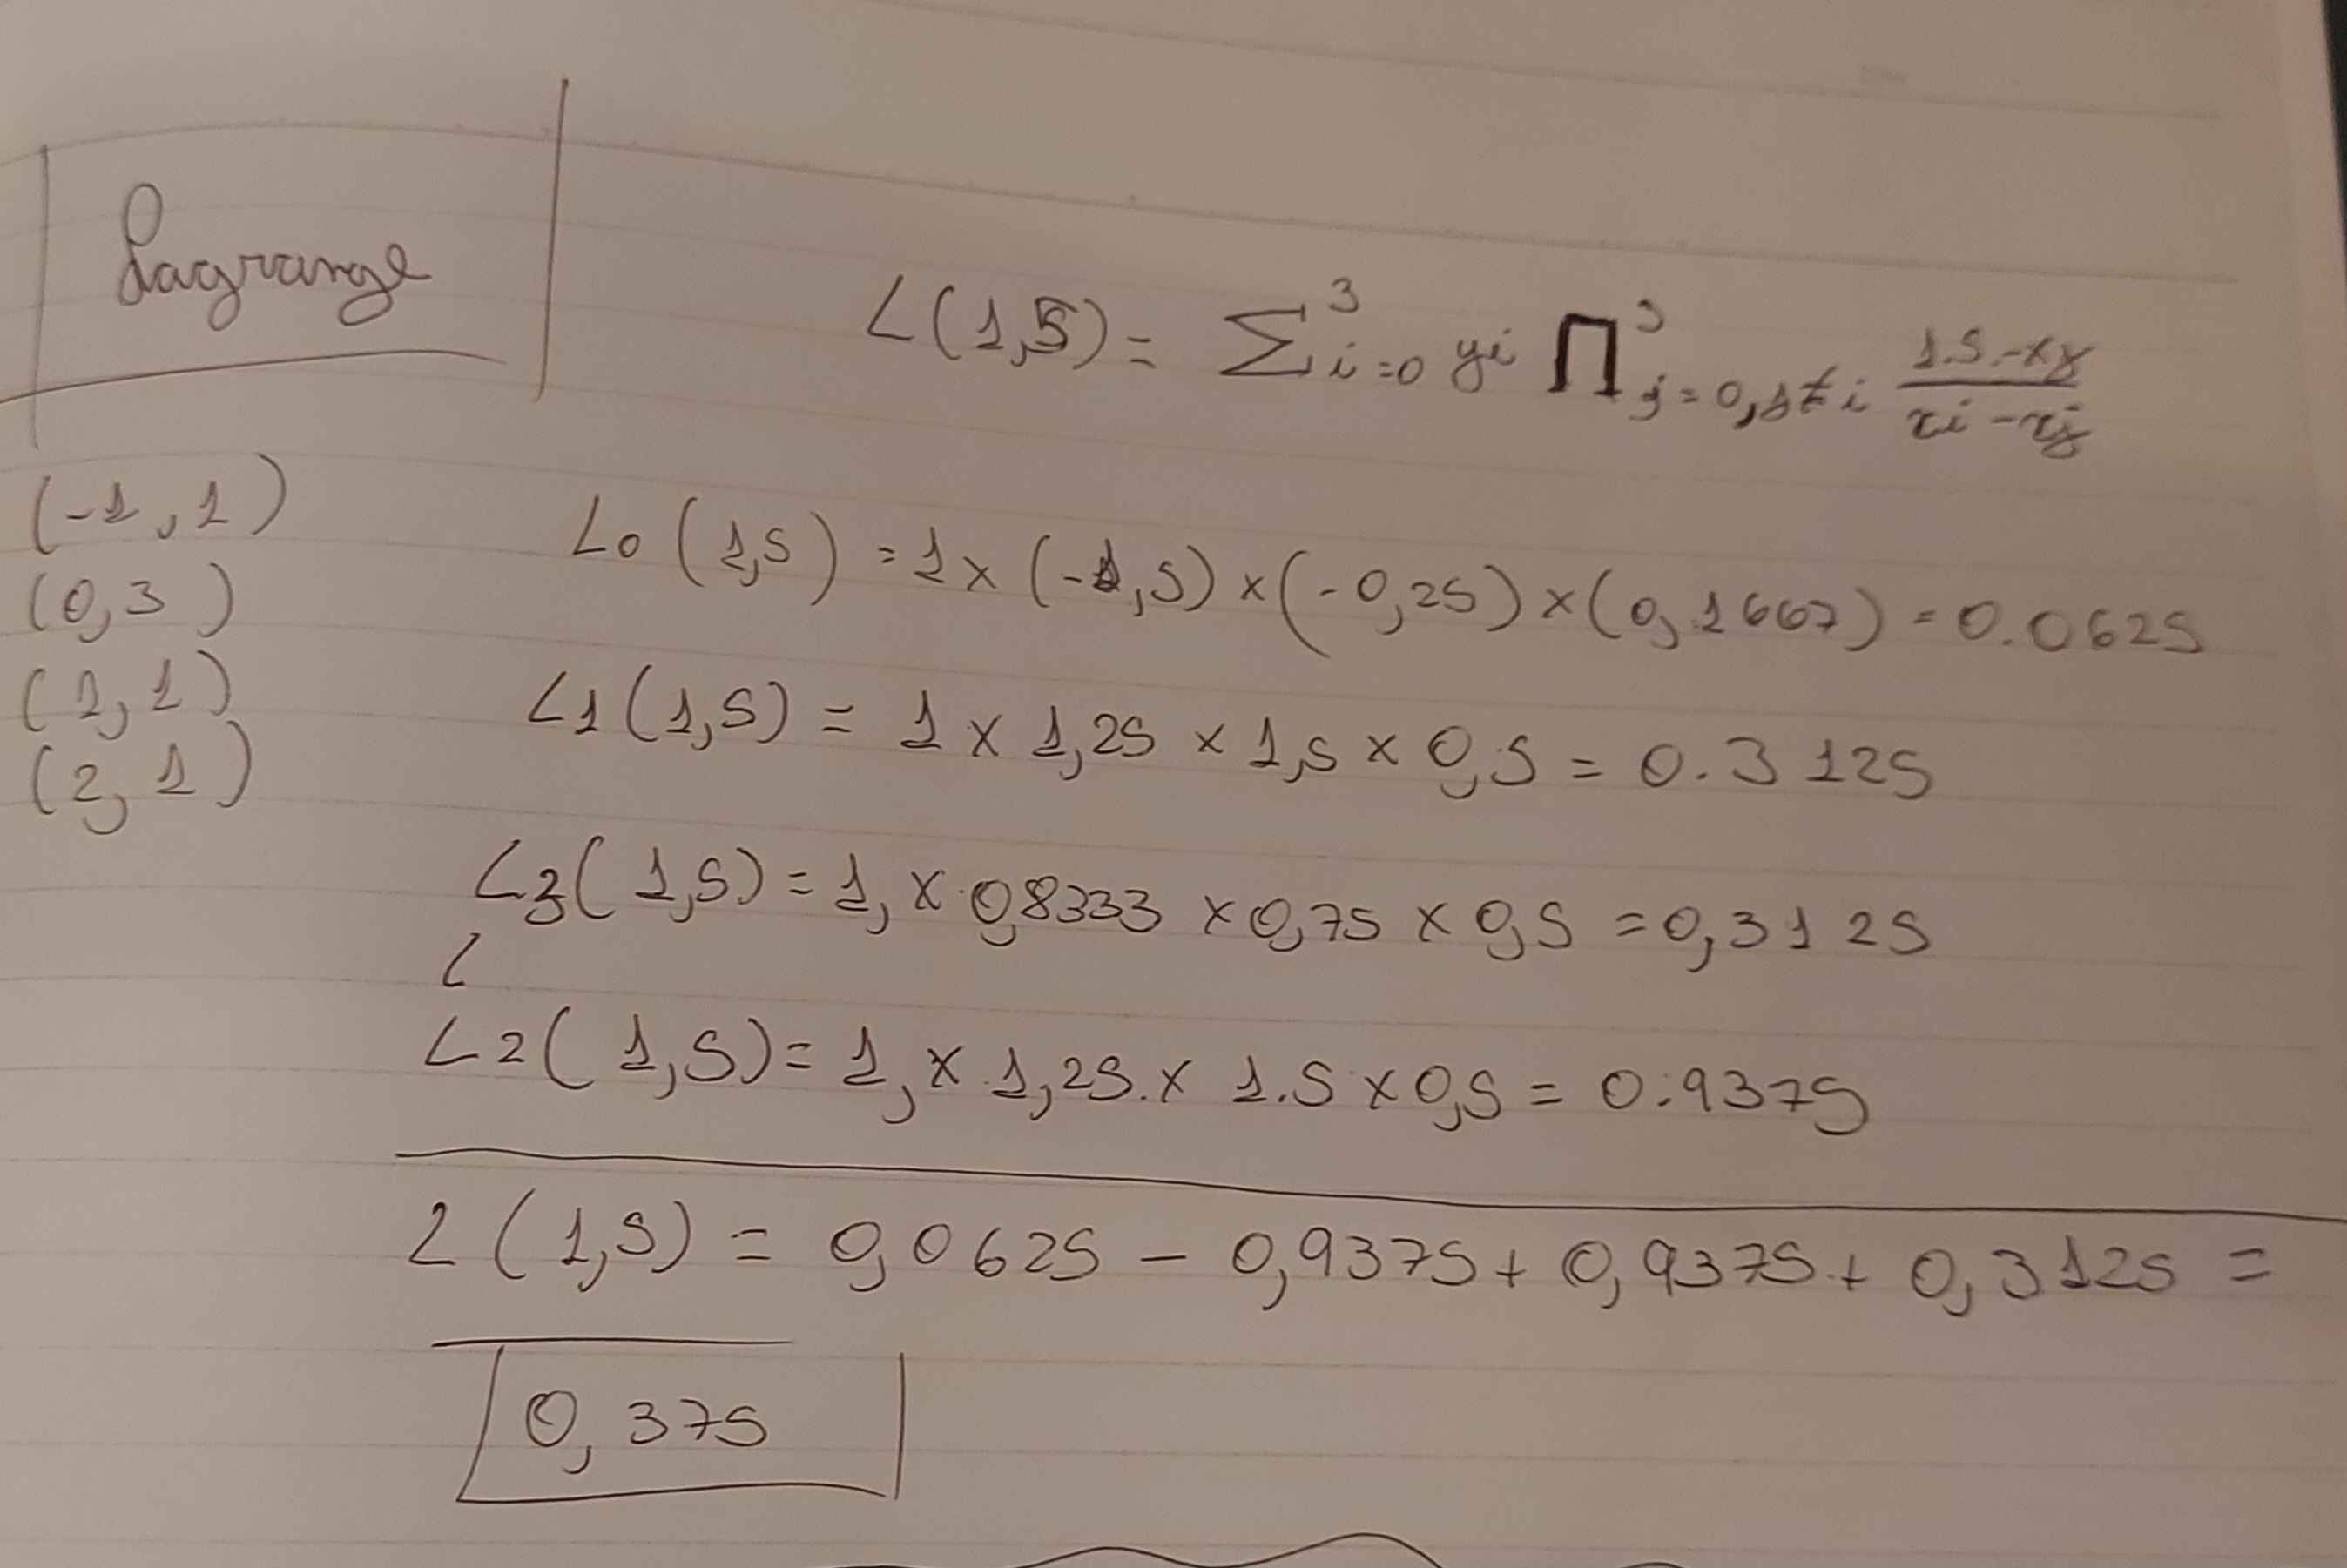 Lagrange
L(1,5) = Σ³i=0 yi Π³j=0,j≠i 1.5-xj / xi-xj
(-1,1)
(0,3)
(1,1)
(2,1)
L0(1,5) = 1x(-1,5)x(-0,25)x(0,1667) = 0.0625
L1(1,5) = 1 x 1,25 x 1,5 x 0,5 = 0.3125
L3(1,5) = 1, x 0,8333 x 0,75 x 0,5 = 0,3125
L
L2(1,5) = 1, x 1,25. x 1.5 x 0,5 = 0.9375
L(1,5) = 0,0625 - 0,9375 + 0,9375 + 0,3125 =
0,375